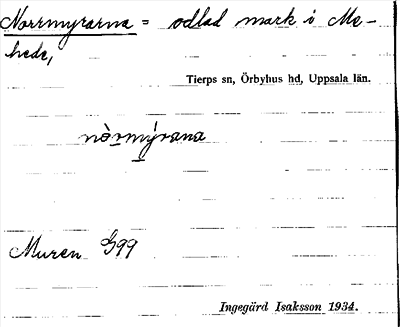 Norrmyrarna = odlad mark i Me-
hede,
Tierps sn, Örbyhus hd, Uppsala län.
nòrmýrana
Muren 399
Ingegärd Isaksson 1934.